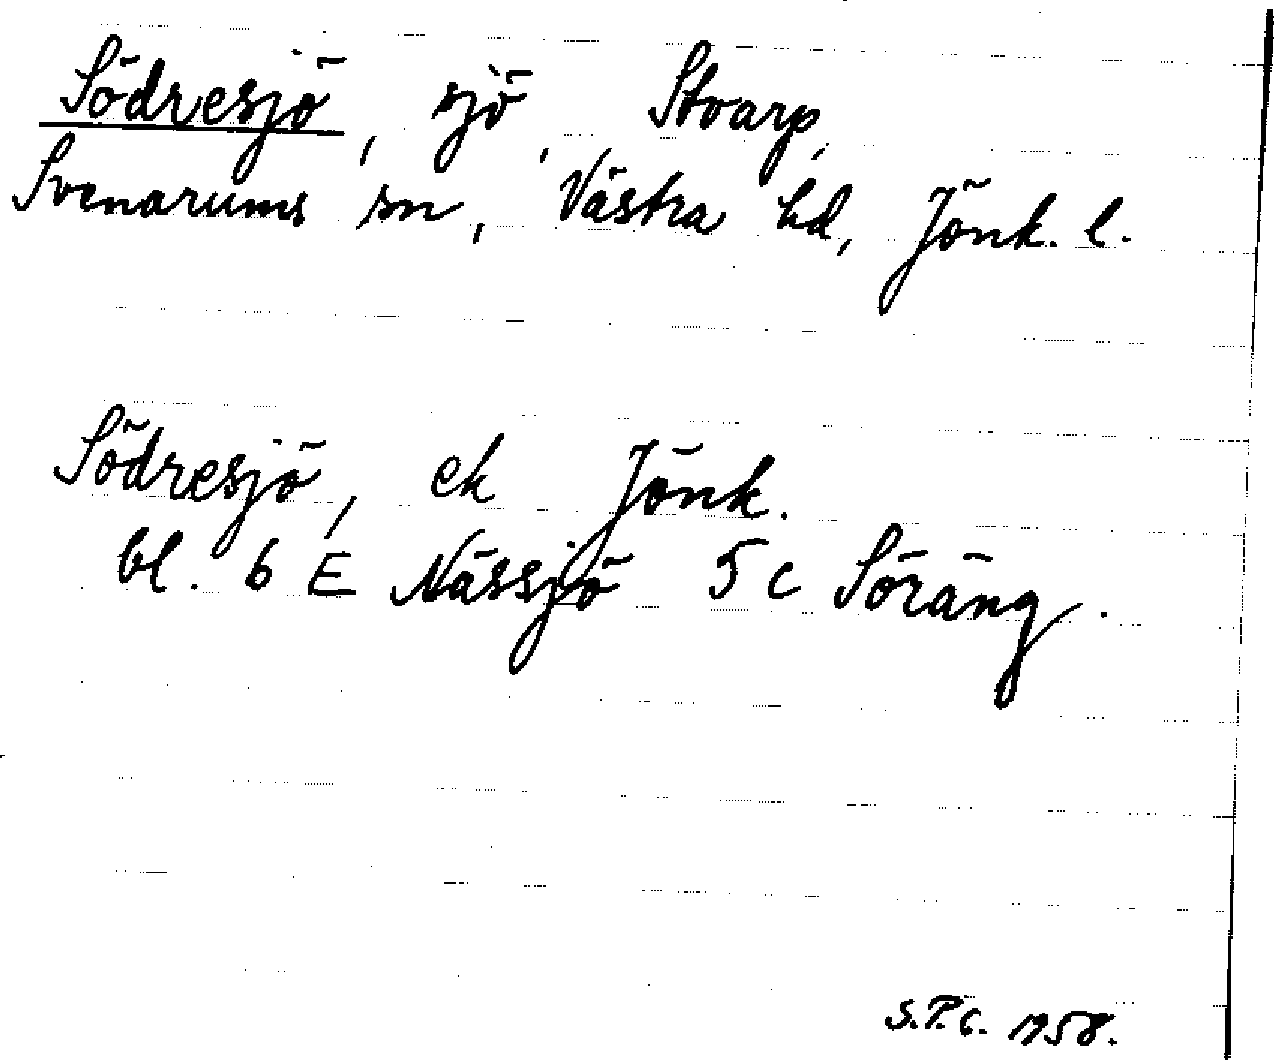 Södresjö, sjö, Stoarp,
Svenarums sn, Västra hd, Jönk. l.
Södresjö, ek Jönk.
bl. 6 E Nässjö 5 c Söräng.
S.P.G. 1958.